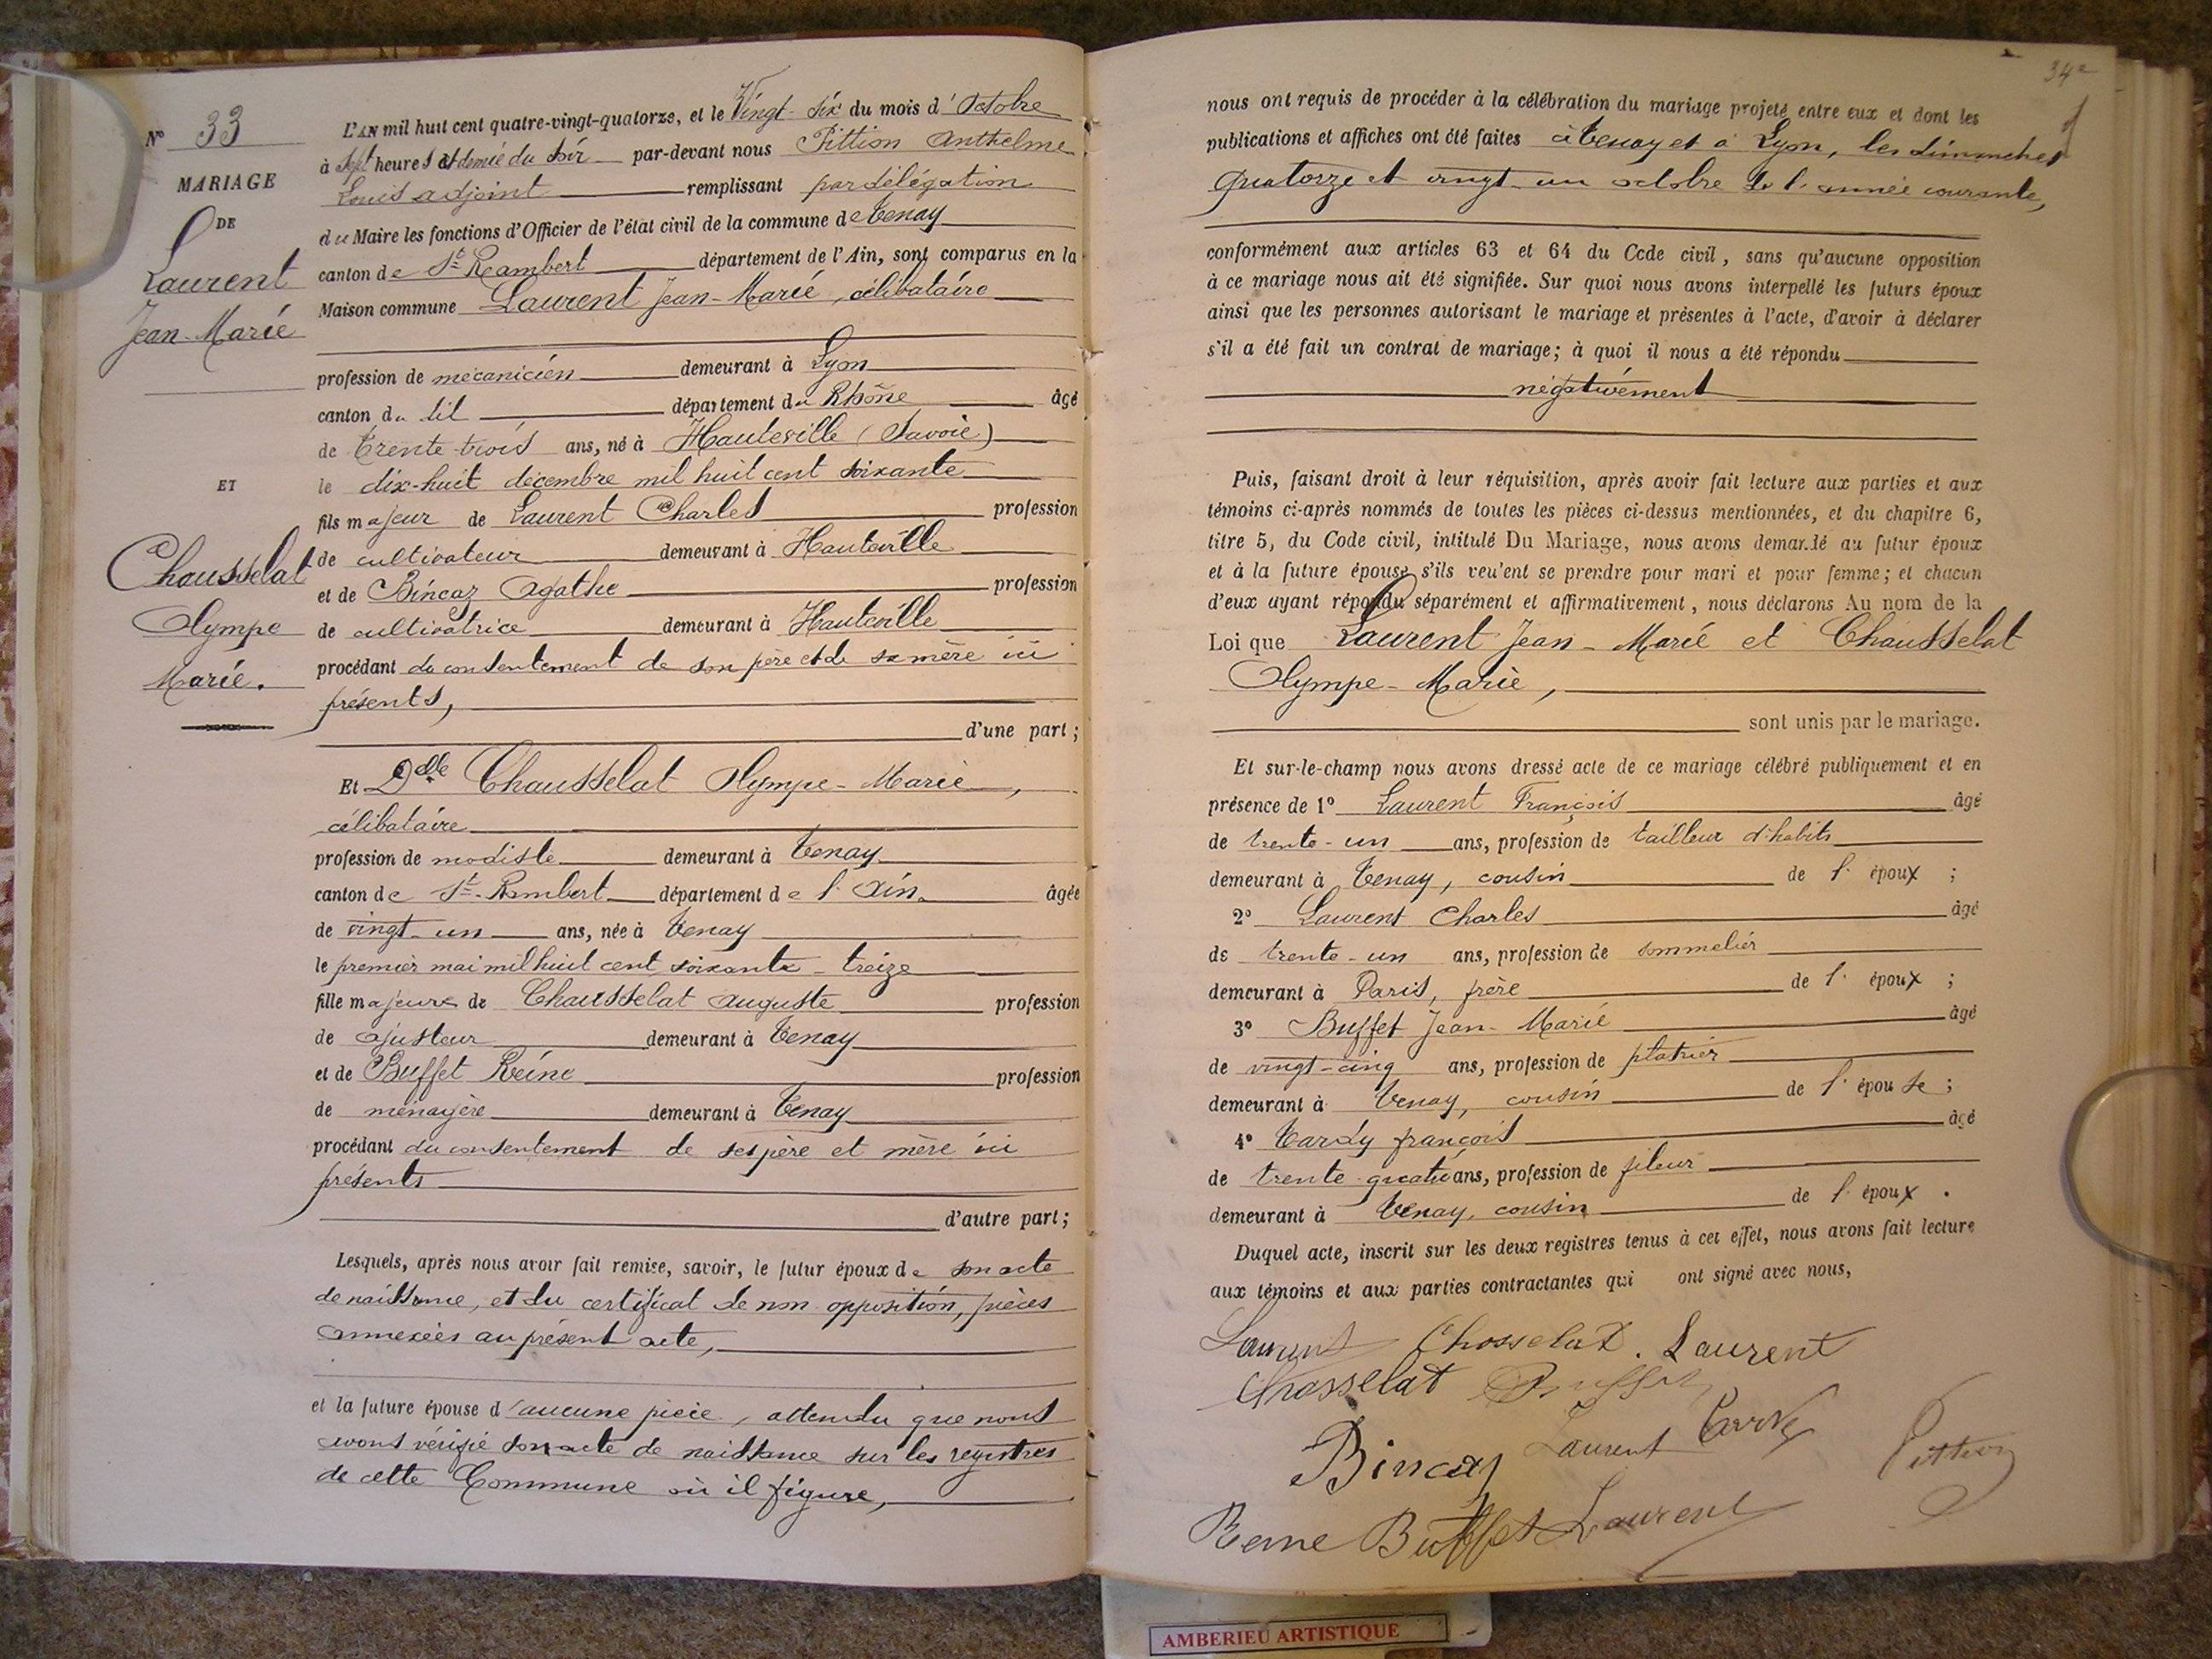 N° 33
MARIAGE
DE
Laurent
Jean-Marie
ET
Chausselat
Olympe
Marie.
L'AN mil huit cent quatre-vingt-quatorze, et le Vingt-six du mois d'Octobre
à sept heures et demie du soir par-devant nous Pittion Anthelme
Louis adjoint remplissant par délégation
du Maire les fonctions d'Officier de l'état civil de la commune de Tenay
canton de St Rambert département de l'Ain, sont comparus en la
Maison commune Laurent Jean-Marie, célibataire
profession de mécanicien demeurant à Lyon
canton du dit département du Rhône âgé
de trente-trois ans, né à Hauteville (Savoie)
le dix-huit décembre mil huit cent soixante
fils majeur de Laurent Charles profession
de cultivateur demeurant à Hauteville
et de Bincaz Agathe profession
de cultivatrice demeurant à Hauteville
procédant du consentement de son père et de sa mère ici
présents,
d'une part;
Et Delle Chausselat Olympe-Marie,
célibataire
profession de modiste demeurant à Tenay
canton de St-Rambert département de l'Ain. âgée
de vingt-un ans, née à Tenay
le premier mai mil huit cent soixante-treize
fille majeure de Chausselat Auguste profession
de ajusteur demeurant à Tenay
et de Buffet Reine profession
de ménagère demeurant à Tenay
procédant du consentement de ses père et mère ici
présents
d'autre part;
Lesquels, après nous avoir fait remise, savoir, le futur époux de son acte
de naissance, et du certificat de non opposition, pièces
annexées au présent acte,
et la future épouse d'aucune pièce, attendu que nous
avons vérifié son acte de naissance sur les registres
de cette Commune où il figure,
34
nous ont requis de procéder à la célébration du mariage projeté entre eux et dont les
publications et affiches ont été faites à Tenay et à Lyon, les dimanches
quatorze et vingt-un octobre de l'année courante,
conformément aux articles 63 et 64 du Code civil, sans qu'aucune opposition
à ce mariage nous ait été signifiée. Sur quoi nous avons interpellé les futurs époux
ainsi que les personnes autorisant le mariage et présentes à l'acte, d'avoir à déclarer
s'il a été fait un contrat de mariage; à quoi il nous a été répondu
négativement
Puis, faisant droit à leur réquisition, après avoir fait lecture aux parties et aux
témoins ci-après nommés de toutes les pièces ci-dessus mentionnées, et du chapitre 6,
titre 5, du Code civil, intitulé Du Mariage, nous avons demandé au futur époux
et à la future épouse s'ils veulent se prendre pour mari et pour femme; et chacun
d'eux ayant répondu séparément et affirmativement, nous déclarons Au nom de la
Loi que Laurent Jean-Marie et Chausselat
Olympe-Marie,
sont unis par le mariage.
Et sur-le-champ nous avons dressé acte de ce mariage célébré publiquement et en
présence de 1° Laurent François âgé
de trente-un ans, profession de tailleur d'habits
demeurant à Tenay, cousin de l'époux;
2° Laurent Charles âgé
de trente-un ans, profession de sommelier
demeurant à Paris, frère de l'époux;
3° Buffet Jean-Marie âgé
de vingt-cinq ans, profession de platrier
demeurant à Tenay, cousin de l'épouse;
4° Tardy françois âgé
de trente quatre ans, profession de fileur
demeurant à Tenay, cousin de l'époux.
Duquel acte, inscrit sur les deux registres tenus à cet effet, nous avons fait lecture
aux témoins et aux parties contractantes qui ont signé avec nous,
Laurent Chosselat. Laurent
Chosselat Buffet
Bincaz Laurent Tardy Pittion
Reine Buffet Laurent
AMBERIEU ARTISTIQUE